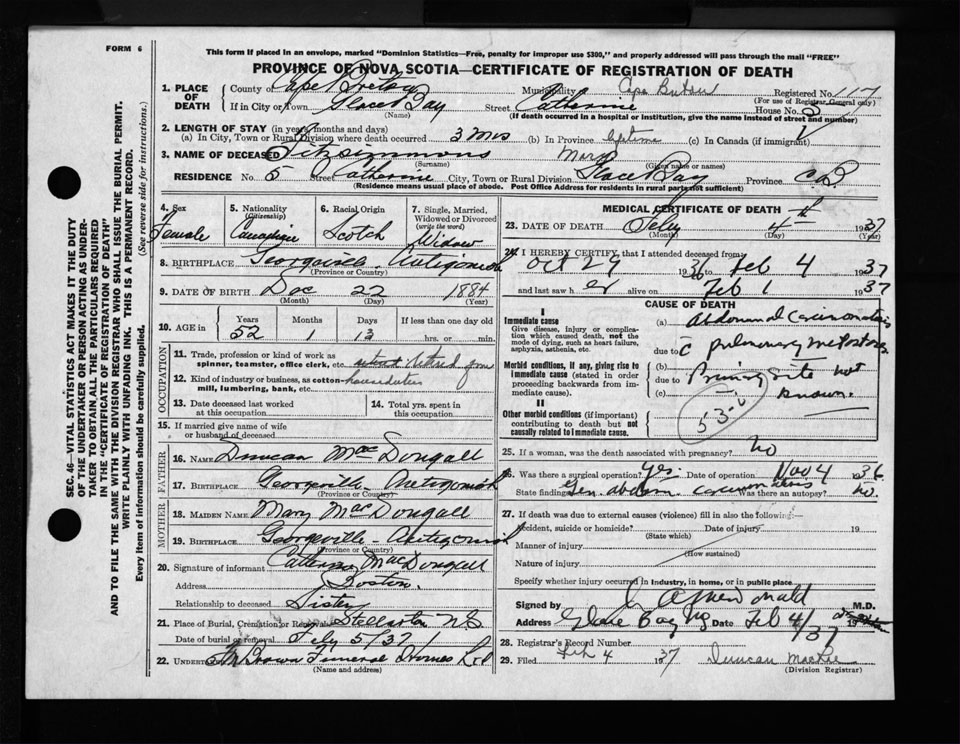 FORM 6
This form if placed in an envelope, marked "Dominion Statistics—Free, penalty for improper use $300," and properly addressed will pass through the mail "FREE"
PROVINCE OF NOVA SCOTIA—CERTIFICATE OF REGISTRATION OF DEATH
1. PLACE OF DEATH County of Cape Breton Municipality Cape Breton Registered No.
(For use of Registrar General only)
If in City or Town Glace Bay Street Catherine House No.
(Name) (If death occurred in a hospital or institution, give the name instead of street and number)
2. LENGTH OF STAY (in years, months and days)
(a) In City, Town or Rural Division where death occurred 3 mos (b) In Province lifetime (c) In Canada (if immigrant)
3. NAME OF DECEASED Fitzsimmons Mary
(Surname) (Given name or names)
RESIDENCE No. 5 Street Catherine City, Town or Rural Division Glace Bay Province C.B.
(Residence means usual place of abode. Post Office Address for residents in rural parts not sufficient)
4. Sex Female
5. Nationality (Citizenship) Canadian
6. Racial Origin Scotch
7. Single, Married, Widowed or Divorced (write the word) Widow
8. BIRTHPLACE Georgeville - Antigonish
(Province or Country)
9. DATE OF BIRTH Dec 22 1884
(Month) (Day) (Year)
10. AGE in Years Months Days If less than one day old
52 1 13 hrs. or min.
OCCUPATION
11. Trade, profession or kind of work as spinner, teamster, office clerk, etc.
12. Kind of industry or business, as cotton mill, lumbering, bank, etc. house duties
13. Date deceased last worked at this occupation
14. Total yrs. spent in this occupation
15. If married give name of wife or husband of deceased
FATHER
16. NAME Duncan MacDougall
17. BIRTHPLACE Georgeville - Antigonish
(Province or Country)
MOTHER
18. MAIDEN NAME Mary MacDougall
19. BIRTHPLACE Georgeville - Antigonish
(Province or Country)
20. Signature of informant Catherine MacDougall
Address Boston
Relationship to deceased Sister
21. Place of Burial, Cremation or Removal Stellarton N.S.
Date of burial or removal Feby 5/37
22. UNDERTAKER Brown Funeral Homes Ltd
(Name and address)
MEDICAL CERTIFICATE OF DEATH
23. DATE OF DEATH Feby 4th 1937
(Month) (Day) (Year)
24. I HEREBY CERTIFY, that I attended deceased from
Oct 29 1936 to Feb 4 1937
and last saw her alive on Feb 1 1937
CAUSE OF DEATH
I
Immediate cause
Give disease, injury or complication which caused death, not the mode of dying, such as heart failure, asphyxia, asthenia, etc.
(a) Abdominal Carcinomatosis
due to c pulmonary metastasis
Morbid conditions, if any, giving rise to immediate cause (stated in order proceeding backwards from immediate cause).
(b)
due to Primary site not
(c) known.
II
Other morbid conditions (if important) contributing to death but not causally related to immediate cause.
53-
25. If a woman, was the death associated with pregnancy? No
26. Was there a surgical operation? Yes. Date of operation Nov 4 1936
State findings Gen. abdom. carcinomatosis Was there an autopsy? No.
27. If death was due to external causes (violence) fill in also the following:—
Accident, suicide or homicide? Date of injury 19
(State which)
Manner of injury
(How sustained)
Nature of injury
Specify whether injury occurred in industry, in home, or in public place
Signed by M.D.
Address Glace Bay NS Date Feb 4/37
28. Registrar's Record Number
29. Filed Feb 4 1937 Duncan
(Division Registrar)
SEC. 46—VITAL STATISTICS ACT MAKES IT THE DUTY
OF THE UNDERTAKER OR PERSON ACTING AS UNDERTAKER TO OBTAIN ALL THE PARTICULARS REQUIRED
IN THE "CERTIFICATE OF REGISTRATION OF DEATH"
AND TO FILE THE SAME WITH THE DIVISION REGISTRAR WHO SHALL ISSUE THE BURIAL PERMIT.
WRITE PLAINLY WITH UNFADING INK. THIS IS A PERMANENT RECORD.
Every item of information should be carefully supplied. (See reverse side for instructions.)